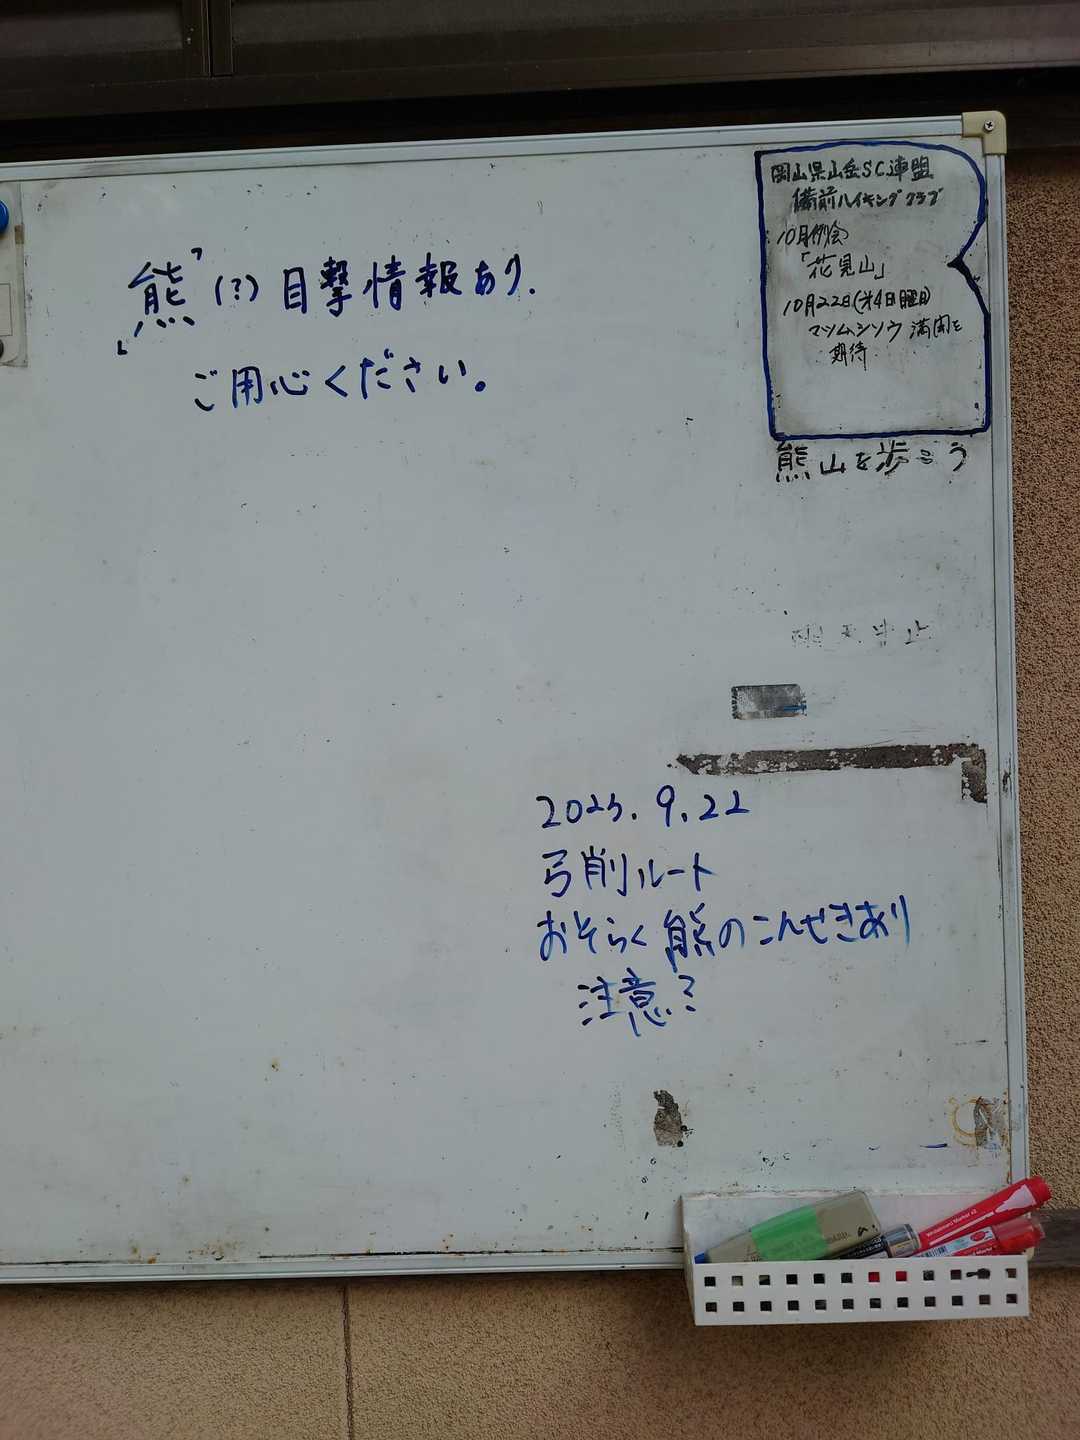 「熊」(?) 目撃情報あり.
ご用心ください。
岡山県山岳SC連盟
備前ハイキングクラブ
10月例会
「花見山」
10月22日(第4日曜日)
マツムシソウ 満開を
期待
熊山を歩こう
2025.9.22
弓削ルート
おそらく熊のこんせきあり
注意?